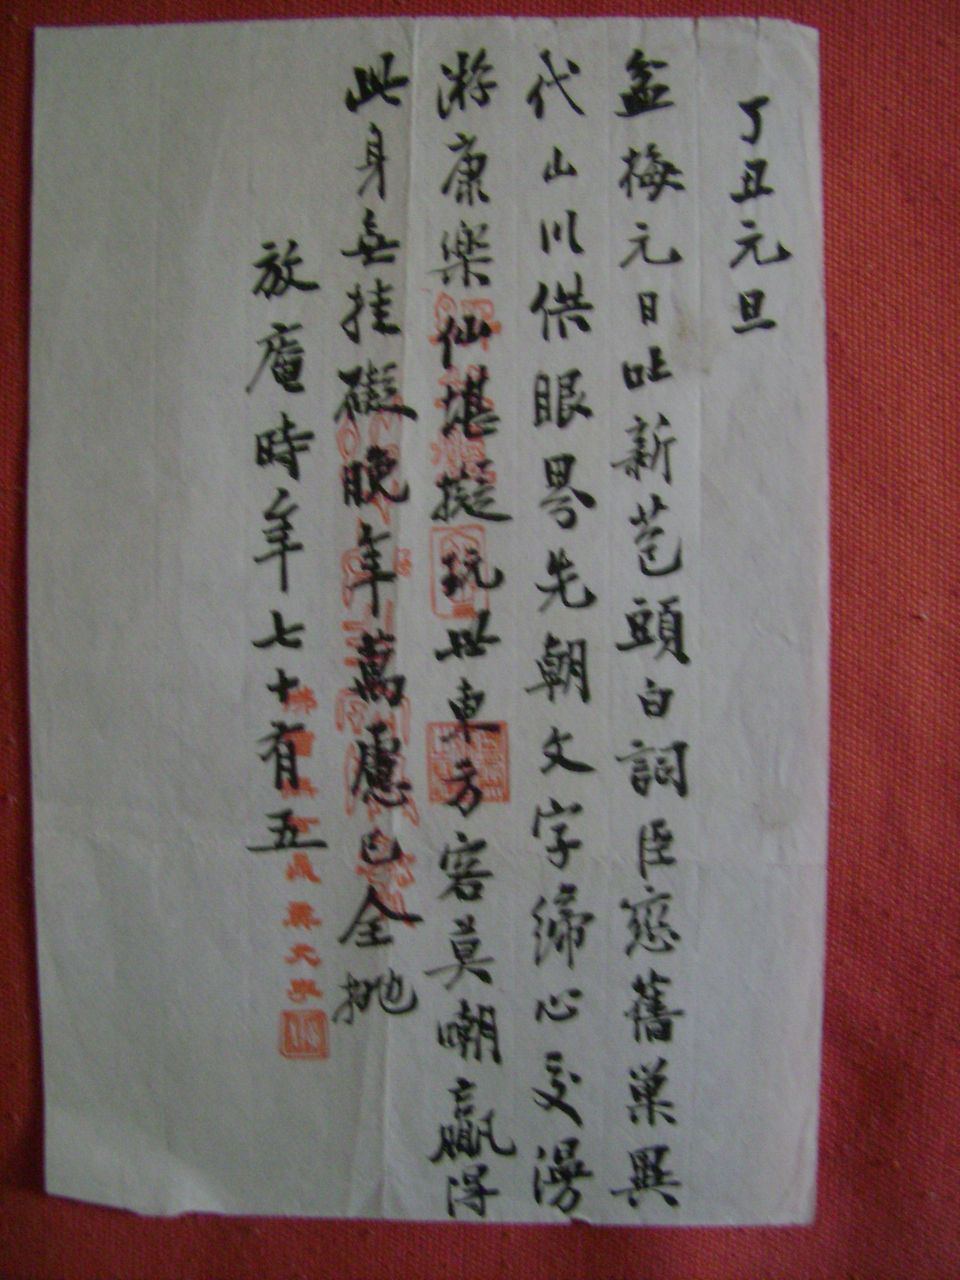 丁丑元旦
盆梅元日吐新苞頭白詞臣戀舊巢異
代山川供眼界先朝文字締心交漫
游康樂仙堪擬玩世東方客莫嘲贏得
此身無挂礙晚年萬慮已全拋
放庵時年七十有五